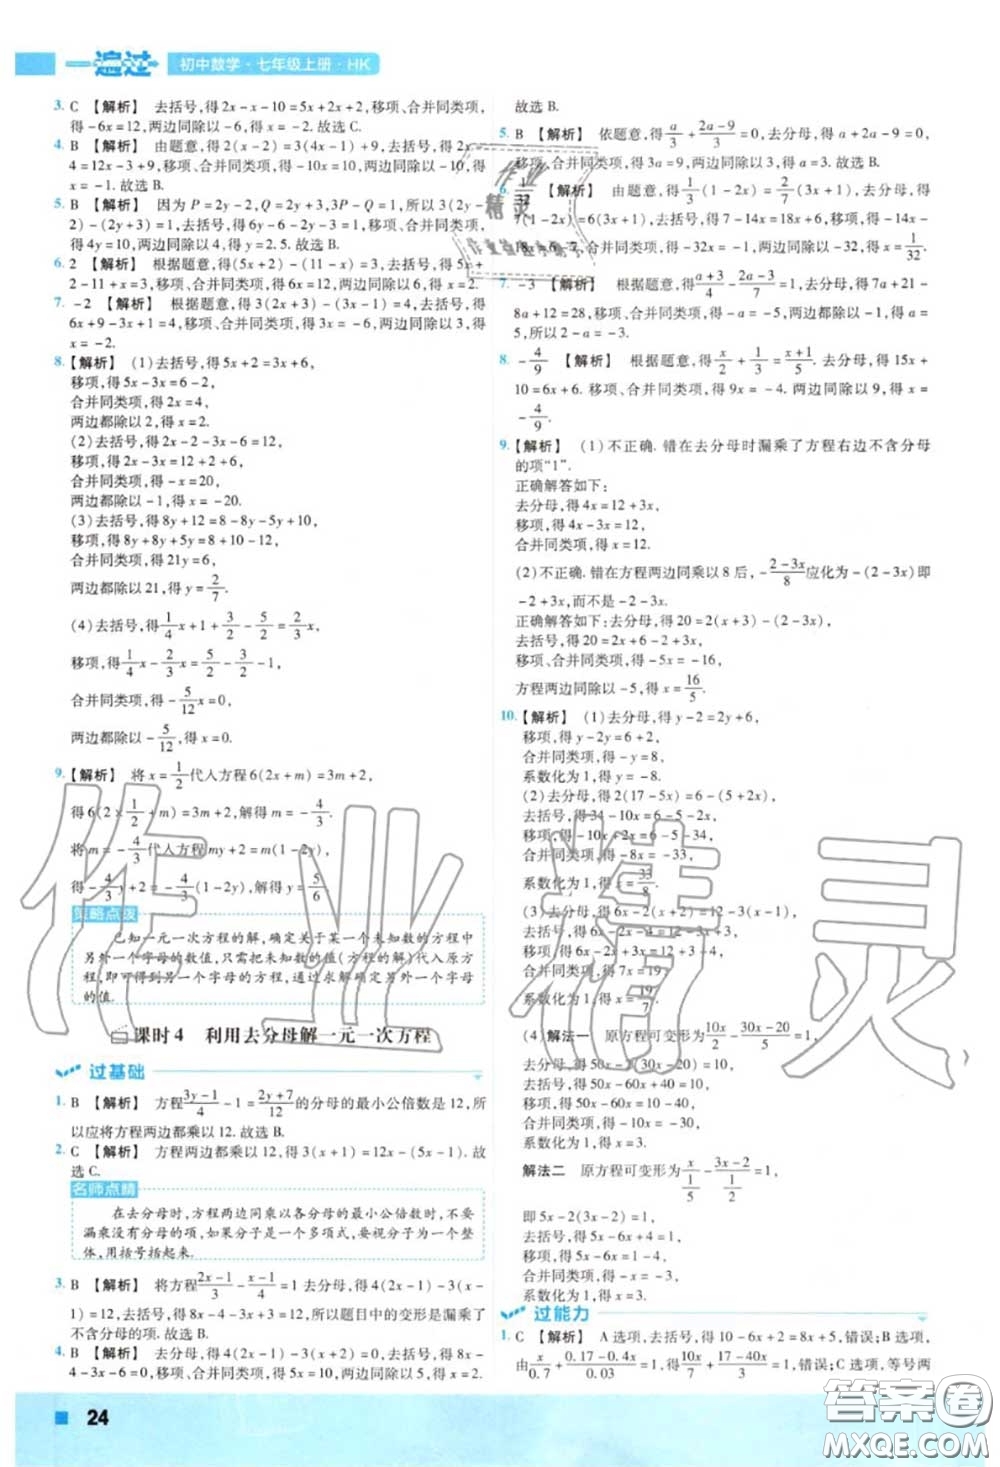 一遍过 初中数学·七年级上册·HK
3. C 【解析】 去括号,得2x-x-10=5x+2x+2,移项、合并同类项,
得-6x=12,两边同除以-6,得x=-2.故选C.
4. B 【解析】 由题意,得2(x-2)=3(4x-1)+9,去括号,得2x-
4=12x-3+9,移项、合并同类项,得-10x=10,两边同除以-10,得
x=-1.故选B.
5. B 【解析】 因为P=2y-2,Q=2y+3,3P-Q=1,所以3(2y-
2)-(2y+3)=1,去括号,得6y-6-2y-3=1,移项、合并同类项,
得4y=10,两边同除以4,得y=2.5.故选B.
6. 2 【解析】 根据题意,得5x+2-2x+11+3x=25,
移项、合并同类项,得6x=12,两边同除以6,得x=2.
7. -2 【解析】 根据题意,得3(2x+3)-(3x-1)=4,去括号,得
6x+9-3x+1=4,移项、合并同类项,得3x=-6,两边同除以3,得
x=-2.
8.【解析】 (1)去括号,得5x+2=3x+6,
移项,得5x-3x=6-2,
合并同类项,得2x=4,
两边都除以2,得x=2.
(2)去括号,得2x-6-3x-2=12,
移项,得2x-3x=12+6+2,
合并同类项,得-x=20,
两边都除以-1,得x=-20.
(3)去括号,得8y+12=8-8y-5y+2,
移项,得8y+8y+5y=8+2-12,
合并同类项,得21y=6,
两边都除以21,得y=2/7.
(4)去括号,得1/4x+1+3/2-5/2=2/3x,
合并同类项,得-5/12x=0,
两边都除以-5/12,得x=0.
9.【解析】 将x=1/2代入方程6(2x+m)=3m+2,
得6(2×1/2+m)=3m+2,解得m=-4/3.
将m=-4/3代入方程my+2=m(1-2y),
得-4/3y+2=-4/3(1-2y),解得y=5/6.
策略点拨
已知一元一次方程的解,确定关于某一个未知数的方程中
另外一个字母的数值,只需把未知数的值(方程的解)代入原方
程,即可得到另一个字母的方程,通过求解确定另外一个字母
的值.
课时4 利用去分母解一元一次方程
过基础
1. B 【解析】 方程(3y-1)/4-1=(2y+7)/12的分母的最小公倍数是12,所
以应将方程两边都乘以12.故选B.
2. C 【解析】 方程两边都乘以12,得3(x+1)=12x-(5x-1).故
选C.
名师点睛
在去分母时,方程两边同乘以各分母的最小公倍数时,不要
漏乘没有分母的项,如果分子是一个多项式,要视分子为一个整
体,用括号括起来.
3. B 【解析】 将方程(2x-1)/3-(x-1)/4=1去分母,得4(2x-1)-3(x-
1)=12,去括号,得8x-4-3x+3=12,所以题目中的变形是漏乘了
不含分母的项.故选B.
4. B 【解析】 去分母,得4(2x-1)-3(x+2)=0,去括号,得
8x-4-3x-6=0,移项、合并同类项,得5x=10,两边同除以5,得x=2.
故选B.
5. B 【解析】 依题意,得a/3+(2a-9)/3=0,去分母,得a+2a-9=0,
移项、合并同类项,得3a=9,两边同除以3,得a=3.故选B.
6. 1/32 【解析】 由题意,得1/3(1-2x)=2/7(3x+1),去分母,得
7(1-2x)=6(3x+1),去括号,得7-14x=18x+6,移项,得-14x-
18x=6-7,合并同类项,得-32x=-1,两边同除以-32,得x=1/32.
7. -3 【解析】 根据题意,得(a+3)/4-(2a-3)/7=1,去分母,得7a+21-
8a+12=28,移项、合并同类项,得-a=-5,两边都除以-1,得a=
5,所以2-a=-3.
8. -4/9 【解析】 根据题意,得x/2+1/3=(x+1)/5.去分母,得15x+
10=6x+6.移项、合并同类项,得9x=-4.两边同除以9,得x=
-4/9.
9.【解析】 (1)不正确.错在去分母时漏乘了方程右边不含分母
的项“1”.
正确解答如下:
去分母,得4x=12+3x,
移项,得4x-3x=12,
合并同类项,得x=12.
(2)不正确.错在方程两边同乘以8后,-(2-3x)/8应化为-(2-3x)即
-2+3x,而不是-2-3x.
正确解答如下:去分母,得20=2(x+3)-(2-3x),
去括号,得20=2x+6-2+3x,
移项、合并同类项,得-5x=-16,
方程两边同除以-5,得x=16/5.
10.【解析】 (1)去分母,得y-2=2y+6,
移项,得y-2y=6+2,
合并同类项,得-y=8,
系数化为1,得y=-8.
(2)去分母,得2(17-5x)=6-(5+2x),
去括号,得34-10x=6-5-2x,
移项,得-10x+2x=6-5-34,
合并同类项,得-8x=-33,
系数化为1,得x=33/8.
去括号,得6x-2x+4=12-3x+3,
移项,得6x-2x+3x=12+3-4,
(4)解法一 原方程可变形为10x/2-(30x-20)/5=1,
去分母,得50x-2(30x-20)=10,
去括号,得50x-60x+40=10,
移项,得50x-60x=10-40,
合并同类项,得-10x=-30,
系数化为1,得x=3.
解法二 原方程可变形为x/(1/5)-(3x-2)/(1/2)=1,
即5x-2(3x-2)=1,
去括号,得5x-6x+4=1,
移项,得5x-6x=1-4,
合并同类项,得-x=-3,
系数化为1,得x=3.
过能力
1. C 【解析】 A选项,去括号,得10-6x+2=8x+5,错误;B选项,
由x/0.7+(0.17-0.4x)/0.03=1,得10x/7+(17-40x)/3=1,错误;C选项,等号两
24
作业精灵
答案圈
MXQE.COM